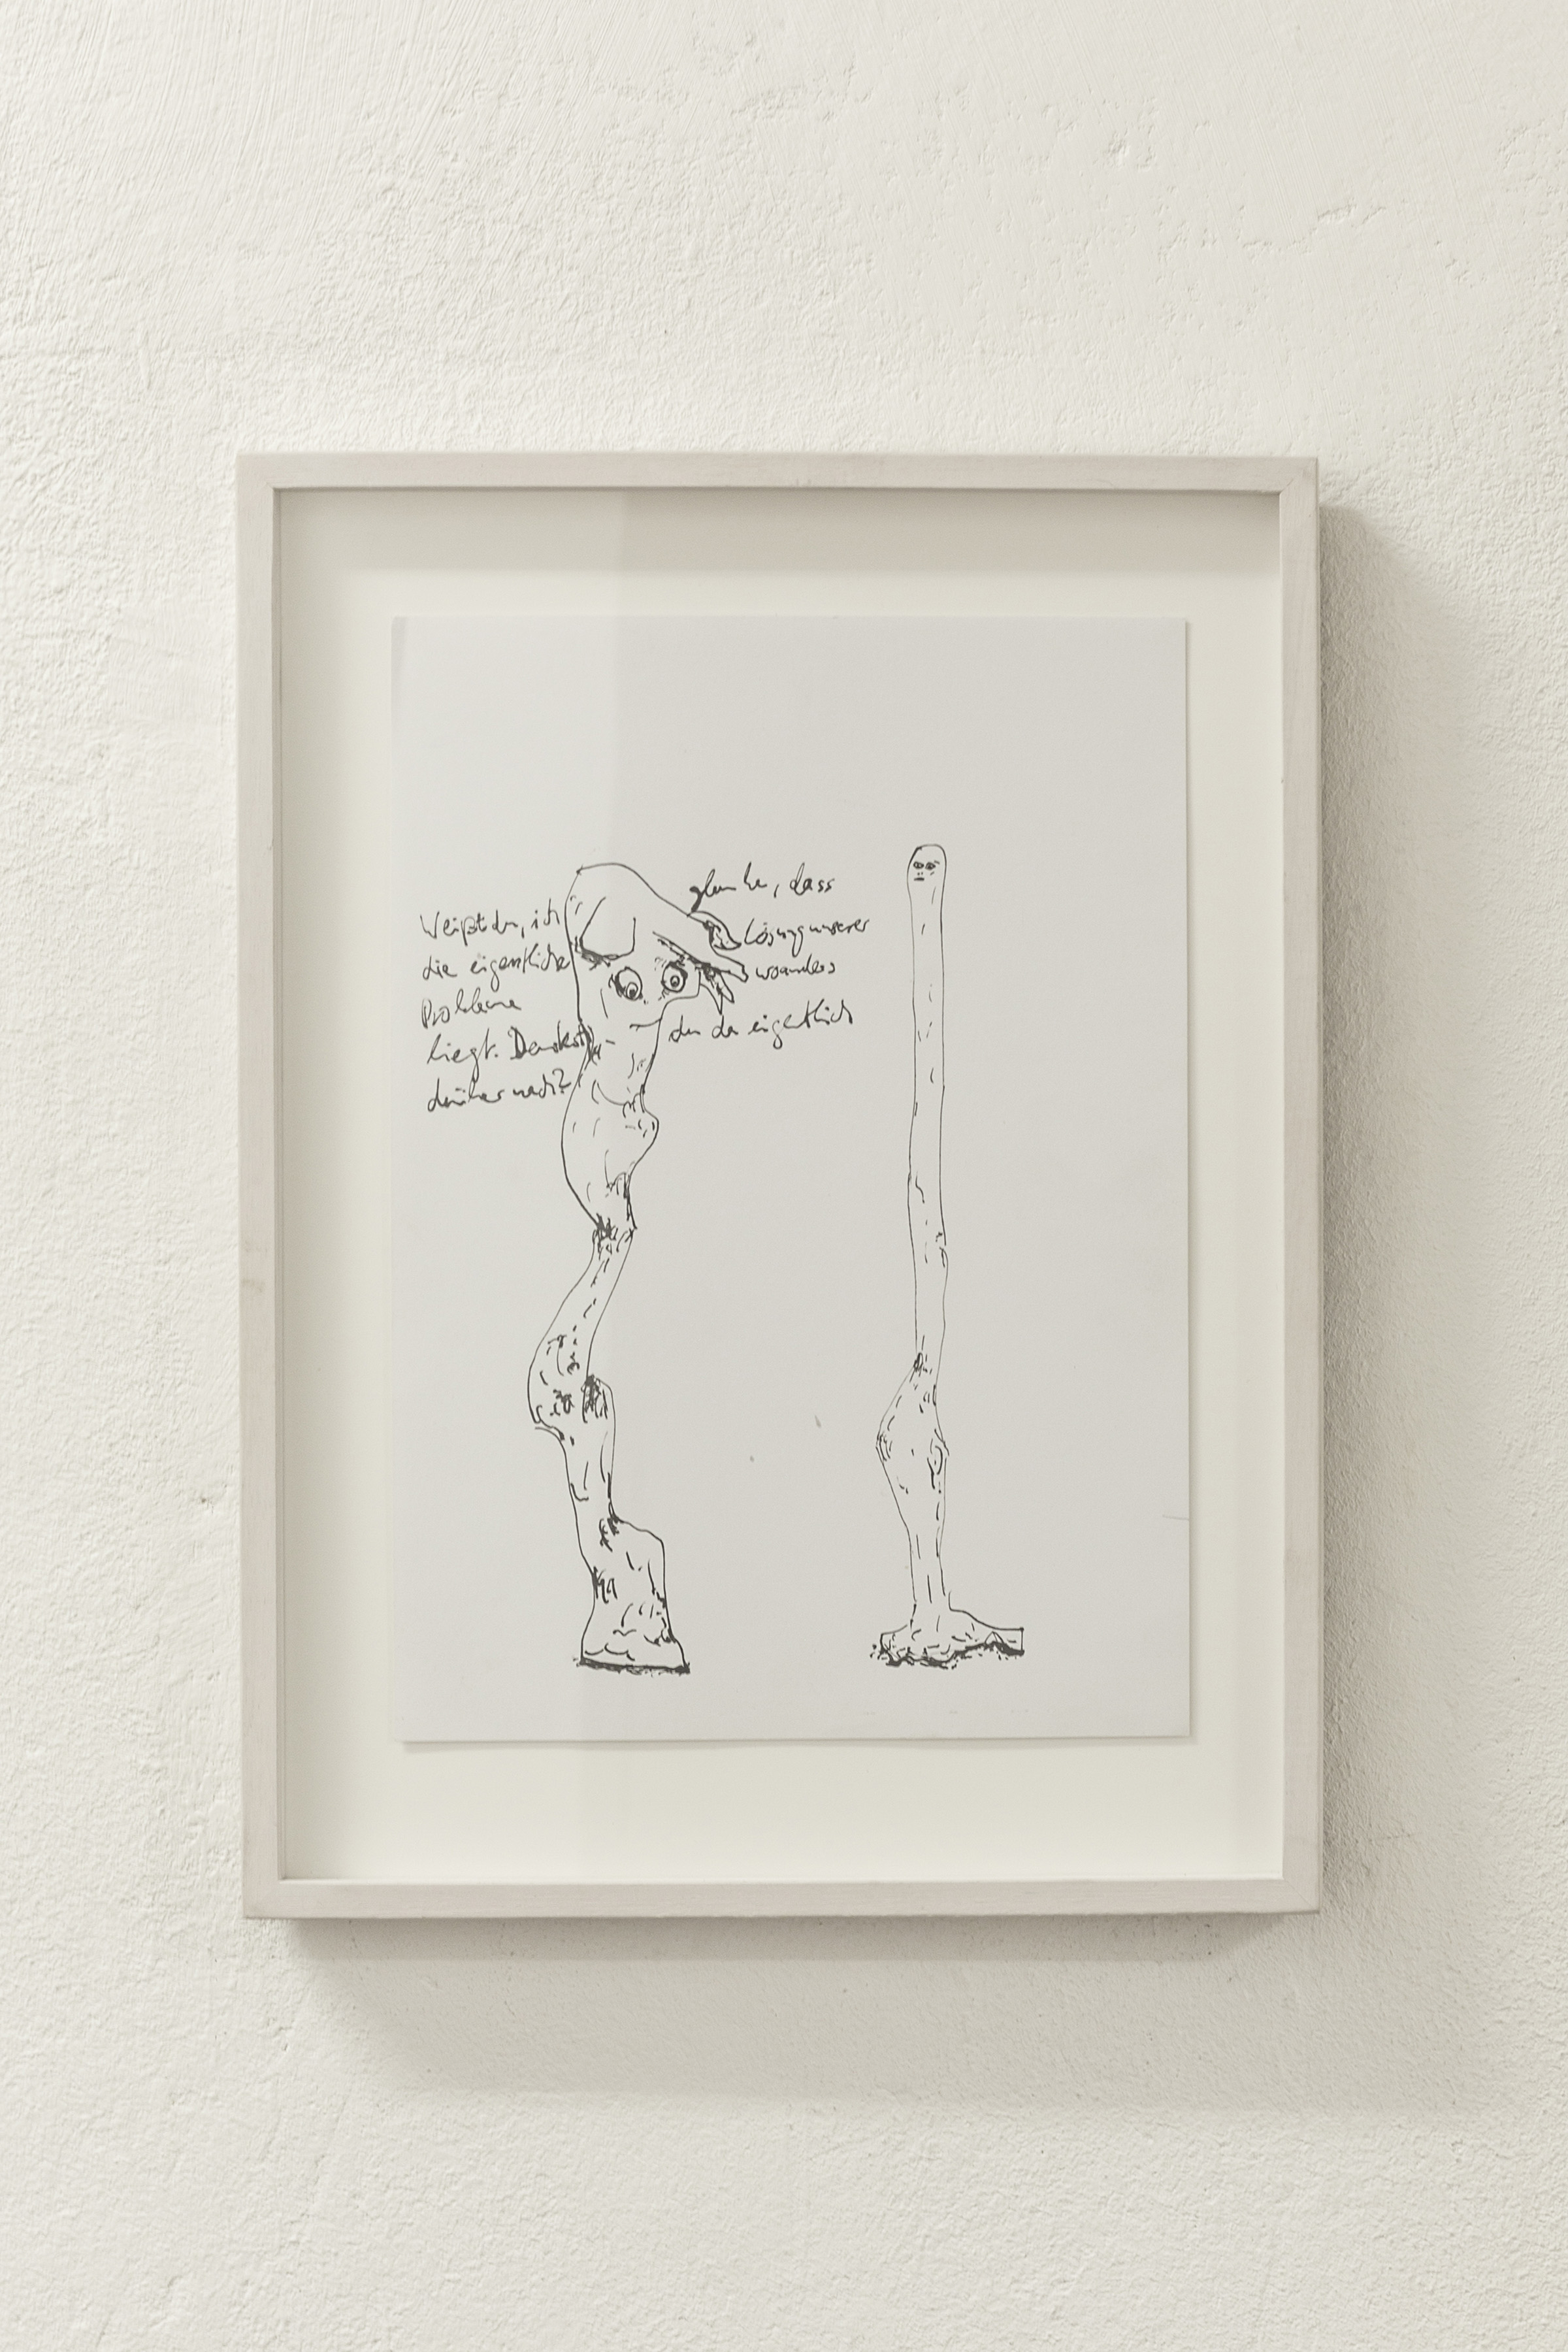 Weißt du, ich glaube, dass
die eigentliche Lösung unserer
Probleme woanders
liegt. Denkst du da eigentlich
drüber nach?